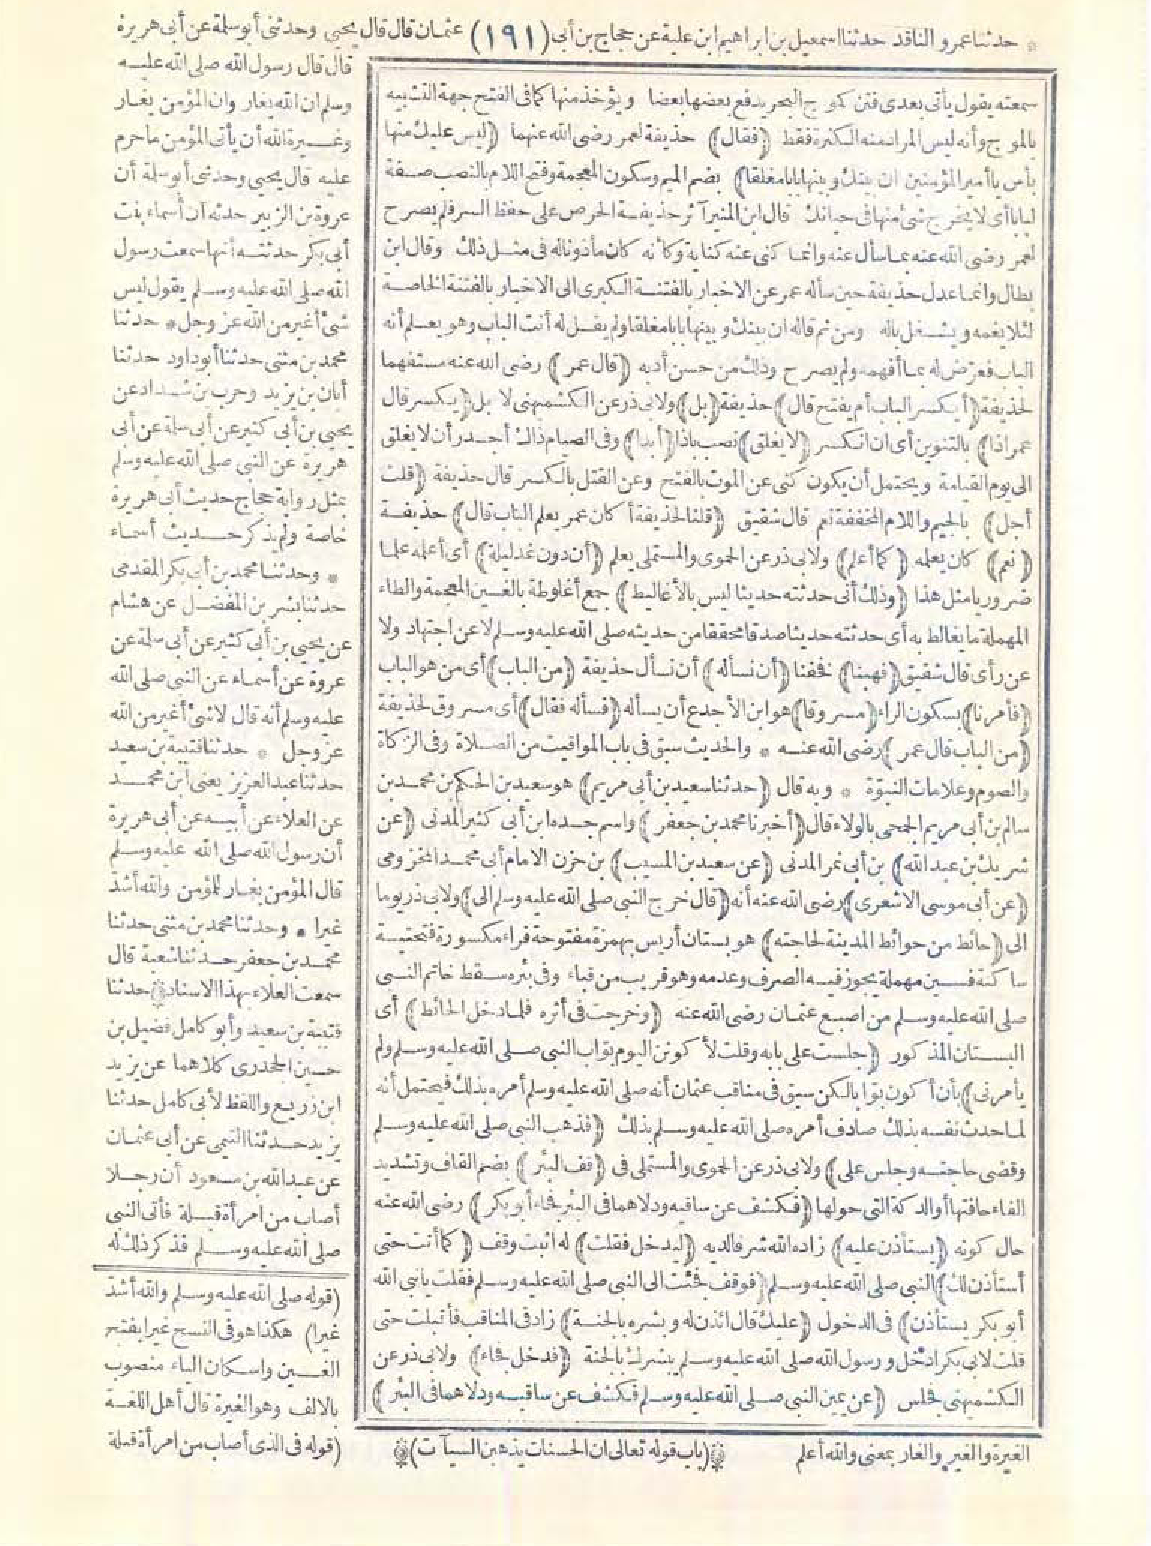 * حدثنا عمرو الناقد حدثنا اسمعيل بن ابراهيم ابن علية عن حجاج بن أبي (١٩١) عثمان قال قال يحيى وحدثنى أبو سلمة عن أبى هريرة
قال قال رسول الله صلى الله عليه
وسلم ان الله يغار وان المؤمن يغار
وغيرة الله أن يأتى المؤمن ما حرم
عليه قال يحيى وحدثنى أبو سلمة أن
عروة بن الزبير حدثه أن أسماء بنت
أبى بكر حدثته أنها سمعت رسول
الله صلى الله عليه وسلم يقول ليس
شئ أغير من الله عز وجل * حدثنا
محمد بن مثنى حدثنا أبو داود حدثنا
أبان بن يزيد وحرب بن شداد عن
يحيى بن أبى كثير عن أبى سلمة عن أبى
هريرة عن النبى صلى الله عليه وسلم
بمثل رواية حجاج حديث أبى هريرة
خاصة ولم يذكر حديث أسماء
* وحدثنا محمد بن أبى بكر المقدمى
حدثنا بشر بن المفضل عن هشام
عن يحيى بن أبى كثير عن أبى سلمة عن
عروة عن أسماء عن النبى صلى الله
عليه وسلم أنه قال لا شئ أغير من الله
عز وجل * حدثنا قتيبة بن سعيد
حدثنا عبد العزيز يعنى ابن محمد
عن العلاء عن أبيه عن أبى هريرة
أن رسول الله صلى الله عليه وسلم
قال المؤمن يغار للمؤمن والله أشد
غيرا * وحدثنا محمد بن مثنى حدثنا
محمد بن جعفر حدثنا شعبة قال
سمعت العلاء بهذا الاسناد حدثنا
قتيبة بن سعيد وأبو كامل فضيل بن
حسين الجحدرى كلاهما عن يزيد
ابن زريع واللفظ لأبى كامل حدثنا
يزيد حدثنا التيمى عن أبى عثمان
عن عبد الله بن مسعود أن رجلا
أصاب من امرأة قبلة فأتى النبى
صلى الله عليه وسلم فذكر ذلك له
(قوله صلى الله عليه وسلم والله أشد
غيرا) هكذا هو فى النسخ غيرا بفتح
الغين واسكان الياء منصوب
بالالف وهو الغيرة قال أهل اللغة
سمعته يقول يأتى بعدى فتن كموج البحر يدفع بعضها بعضا ويؤخذ منها كما فى الفتح جهة التشبيه
بالموج وأنه ليس المراد منه الكثرة فقط (فقال) حذيفة لعمر رضى الله عنهما (ليس عليك منها
بأس يا أمير المؤمنين ان بينك وبينها بابا مغلقا) بضم الميم وسكون المعجمة وفتح اللام بالنصب صفة
لبابا أى لا يخرج شئ منها فى حياتك قال ابن المنير آثر حذيفة الحرص على حفظ السر فلم يصرح
لعمر رضى الله عنه بما سأل عنه وانما كنى عنه كناية وكأنه كان مأذونا له فى مثل ذلك وقال ابن
بطال وانما عدل حذيفة حين سأله عمر عن الاخبار بالفتنة الكبرى الى الاخبار بالفتنة الخاصة
لئلا يغمه ويشتغل باله ومن ثم قال له ان بينك وبينها بابا مغلقا ولم يقل له أنت الباب وهو يعلم أنه
الباب فعرّض له بما أفهمه ولم يصرح وذلك من حسن أدبه (قال عمر) رضى الله عنه مستفهما
لحذيفة (أيكسر الباب أم يفتح قال) حذيفة (بل) ولابى ذر عن الكشميهنى لا بل (يكسر قال
عمر اذا) بالتنوين أى ان انكسر (لا يغلق) نصب باذا (أبدا) وفى الصيام ذاك أجدر أن لا يغلق
الى يوم القيامة ويحتمل أن يكون كنى عن الموت بالفتح وعن القتل بالكسر قال حذيفة (قلت
أجل) بالجيم واللام المخففة نعم قال شقيق (قلنا لحذيفة أكان عمر يعلم الباب قال) حذيفة
(نعم) كان يعلمه (كما أعلم) ولابى ذر عن الحموى والمستملى يعلم (أن دون غد ليلة) أى أعلمه علما
ضروريا مثل هذا (وذلك أنى حدثته حديثا ليس بالأغاليط) جمع أغلوطة بالغين المعجمة والطاء
المهملة ما يغالط به أى حدثته حديثا صدقا محققا من حديثه صلى الله عليه وسلم لا عن اجتهاد ولا
عن رأى قال شقيق (فهبنا) فخفنا (أن نسأله) أن نسأل حذيفة (من الباب) أى من هو الباب
(فأمرنا) بسكون الراء (مسروقا) هو ابن الأجدع أن يسأله (فسأله فقال) أى مسروق لحذيفة
(من الباب قال عمر) رضى الله عنه * والحديث سبق فى باب المواقيت من الصلاة وفى الزكاة
والصوم وعلامات النبوّة * وبه قال (حدثنا سعيد بن أبى مريم) هو سعيد بن الحكم بن محمد بن
سالم بن أبى مريم الجمحى بالولاء قال (أخبرنا محمد بن جعفر) واسم جده ابن أبى كثير المدنى (عن
شريك بن عبد الله) بن أبى نمر المدنى (عن سعيد بن المسيب) بن حزن الامام أبى محمد المخزومى
(عن أبى موسى الاشعرى) رضى الله عنه أنه (قال خرج النبى صلى الله عليه وسلم الى) ولابى ذر يوما
الى (حائط من حوائط المدينة لحاجته) هو بستان أريس بهمزة مفتوحة فراء مكسورة فتحتية
ساكنة فسين مهملة يجوز فيه الصرف وعدمه وهو قريب من قباء وفى بئره سقط خاتم النبى
صلى الله عليه وسلم من اصبع عثمان رضى الله عنه (وخرجت فى أثره فلما دخل الحائط) أى
البستان المذكور (جلست على بابه وقلت لأكونن اليوم بواب النبى صلى الله عليه وسلم ولم
يأمرنى) بأن أكون بوابا لكن سبق فى مناقب عثمان أنه صلى الله عليه وسلم أمره بذلك فيحتمل أنه
لما حدث نفسه بذلك صادف أمره صلى الله عليه وسلم بذلك (فذهب النبى صلى الله عليه وسلم
وقضى حاجته وجلس على) ولابى ذر عن الحموى والمستملى فى (قف البئر) بضم القاف وتشديد
الفاء حافتها أو الدكة التى حولها (فكشف عن ساقيه ودلاهما فى البئر فجاء أبو بكر) رضى الله عنه
حال كونه (يستأذن عليه) زاده الله شرفا لديه (ليدخل فقلت) له اثبت وقف (كما أنت حتى
أستأذن لك) النبى صلى الله عليه وسلم (فوقف فجئت الى النبى صلى الله عليه وسلم فقلت يا نبى الله
أبو بكر يستأذن) فى الدخول (عليك قال ائذن له وبشره بالجنة) زاد فى المناقب فأقبلت حتى
قلت لابى بكر ادخل ورسول الله صلى الله عليه وسلم يبشرك بالجنة (فدخل فجاء) ولابى ذر عن
الكشميهنى فجلس (عن يمين النبى صلى الله عليه وسلم فكشف عن ساقيه ودلاهما فى البئر)
الغيرة والغير والغار بمعنى والله أعلم *(باب قوله تعالى ان الحسنات يذهبن السيآت)* (قوله فى الذى أصاب من امرأة قبلة